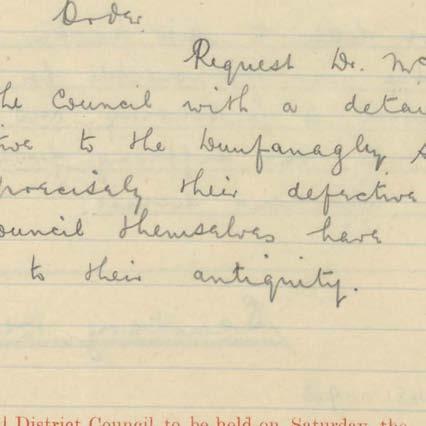 Order.
Request Dr. Mc
the Council with a detai
tive to the Dunfanaghy s
precisely their defective
ouncil themselves have
to their antiquity.
l District Council to be held on Saturday, the